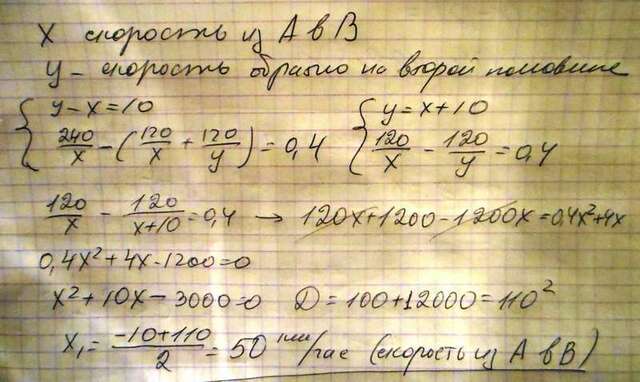 X скорость из A в B
y - скорость обратно на второй половине
{ y-x=10 { y=x+10
240/x - (120/x + 120/y) = 0,4 120/x - 120/y = 0,4
120/x - 120/(x+10) = 0,4 → 120x+1200-1200x=0,4x²+4x
0,4x²+4x-1200=0
x²+10x-3000=0 D=100+12000=110²
x₁= (-10+110)/2 = 50 км/час (скорость из A в B)